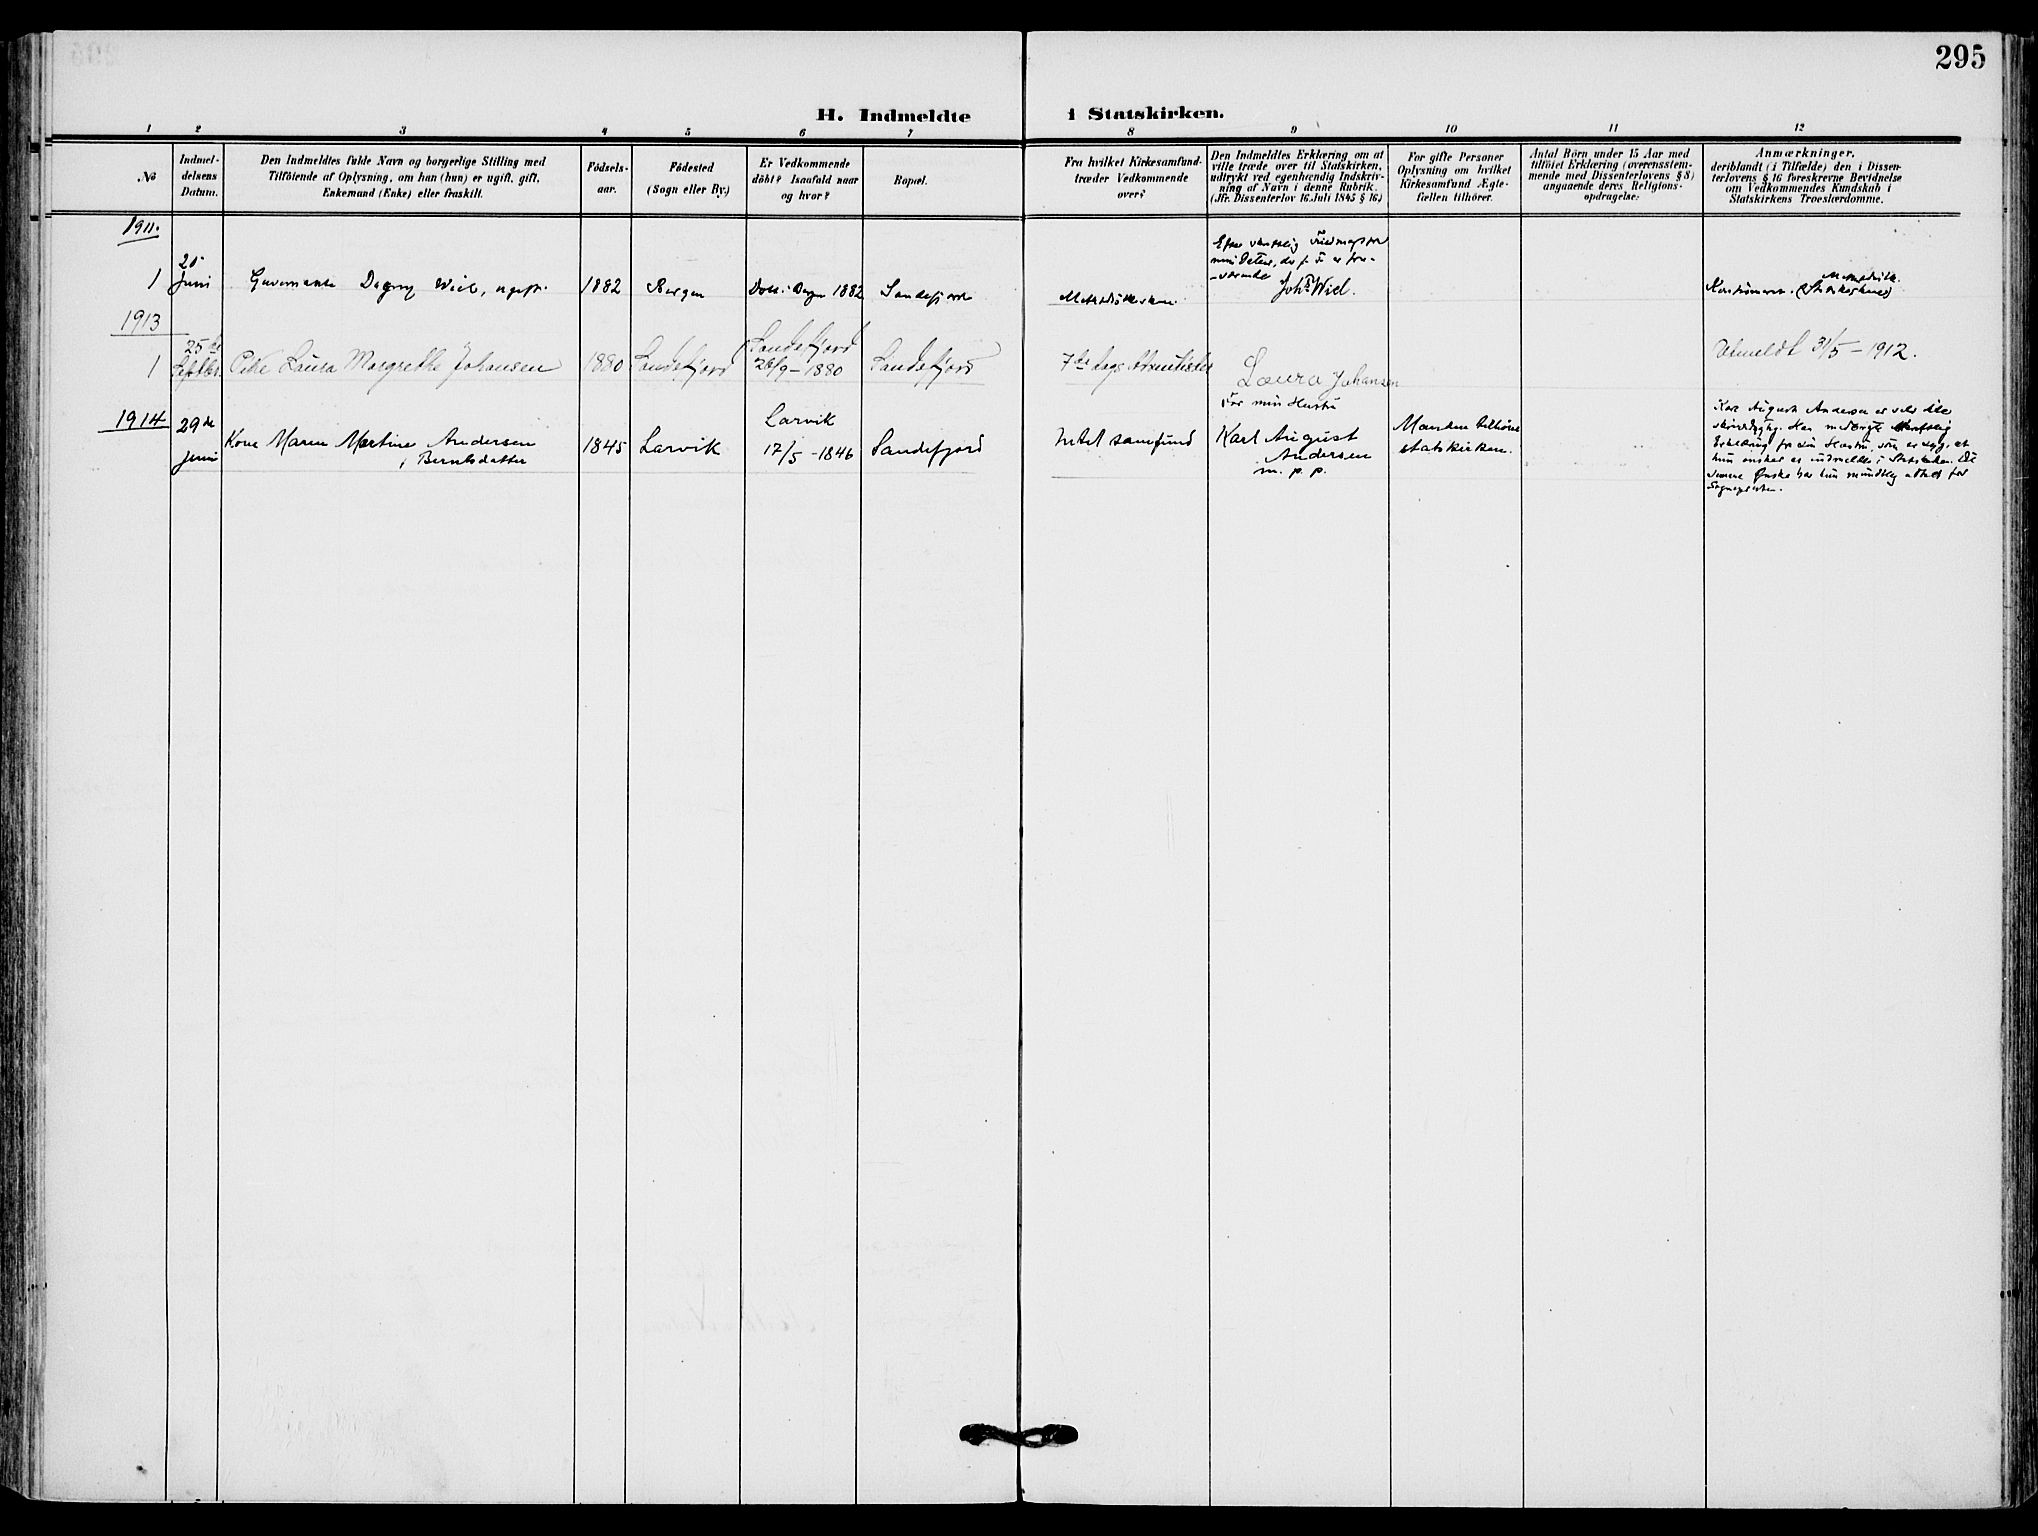 295
H. Indmeldte i Statskirken.
1 2 3 4 5 6 7 8 9 10 11 12
№
Indmel-
delsens
Datum.
Den Indmeldtes fulde Navn og borgerlige Stilling med
Tilföiende af Oplysning, om han (hun) er ugift, gift,
Enkemand (Enke) eller fraskilt.
Födsels-
aar.
Födested
(Sogn eller By.)
Er Vedkommende
döbt? Isaafald naar
og hvor?
Bopæl.
Fra hvilket Kirkesamfund
træder Vedkommende
over?
Den Indmeldtes Erklæring om at
ville træde over til Statskirken,
udtrykt ved egenhændig Indskriv-
ning af Navn i denne Rubrik.
(Jfr. Dissenterlov 16. Juli 1845 § 16.)
For gifte Personer
Oplysning om hvilket
Kirkesamfund Ægte-
fællen tilhörer.
Antal Börn under 15 Aar med
tilföiet Erklæring (overensstem-
mende med Dissenterlovens § 8)
angaaende deres Religions-
opdragelse:
Anmærkninger,
deriblandt (i Tilfælde) den i Dissen-
terlovens § 16 foreskrevne Bevidnelse
om Vedkommendes Kundskab i
Statskirkens Troeslærdomme.
1911.
1
Juni
Guvernante Dagny Wiel, ugift.
1882
Bergen
Döbt i Bergen 1882
Sandefjord
Methodistkirken
Efter skriftlig
min Datter, der p. t. er fra-
-værende
Johs Wiel.
1913
1
25de
Septbr.
Laura Margrethe Johansen
1880
Sandefjord
Sandefjord
26/9 – 1880
Sandefjord
7de dags Adventister
Laura Johansen
Utmeldt 31/5 – 1912.
1914
29de
juni
Kone Maren Martine Andersen
f. Berntsdatter
1845
Larvik
Larvik
17/5 – 1846
Sandefjord
Intet samfund
For min Hustru
Karl August
Andersen
m. p. p.
Manden tilhörer
statskirken.
Karl August Andersen er selv ikke
skrivedygtig. Han medbragte skriftlig
Erklæring fra sin Hustru, som er syg, at
hun ønsker at indmeldes i Statskirken. Det
samme Ønske har hun mundtlig udtalt for
Sognepresten.